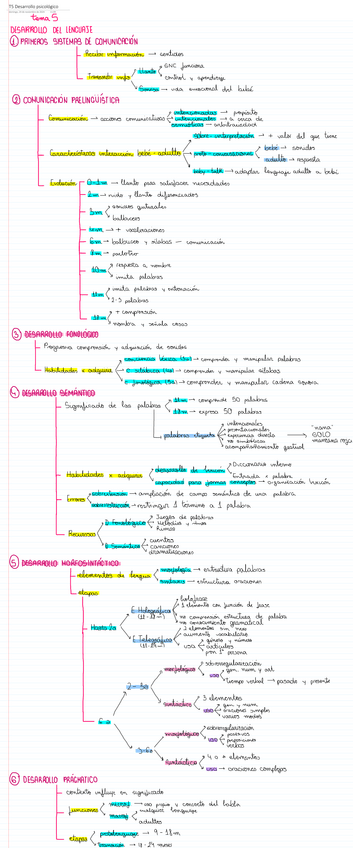 T5 Desarrollo psicológico
tema 5
DESARROLLO DEL LENGUAJE
① PRIMEROS SISTEMAS DE COMUNICACIÓN
Recibir información → sentidos
Transmitir info
llanto → SNC funciona
control y aprendizaje
Sonrisa → vida emocional del bebé
② COMUNICACIÓN PRELINGÜÍSTICA
Comunicación → acciones comunicativas
intencionadas → propósito
intencionales → a cerca de
Características interacción bebé-adulto
sobre-interpretación → + valor del que tiene
proto-conversaciones
bebé → sonidos
adulto → respuesta
baby-talk → adaptar lenguaje adulto a bebé
Evolución
llanto para satisfacer necesidades
2m → ruido y llanto diferenciados
3m
sonidos guturales
balbuceos
→ + vocalizaciones
6m → balbuceos y sílabas - comunicación
8m →
10m
respuesta a nombre
imita palabras
11m
imita palabras y entonación
2-3 palabras
12m
+ comprensión
nombra y señala cosas
③ DESARROLLO FONOLÓGICO
Progresiva comprensión y adquisición de sonidos
Habilidades a adquirir
conciencia léxica → comprender y manipular palabras
C. silábica (4a) → comprender y manipular sílabas
C. fonológica (5a) → comprender y manipular cadena sonora
④ DESARROLLO SEMÁNTICO
Significado de las palabras
→ comprende 50 palabras
18m → expresa 50 palabras
palabras
intencionales
no simbólicas
acompañamiento gestual
"nana"
SOLO
Habilidades a adquirir
desarrollo de léxico
Diccionario interno
Entrada x palabra
capacidad para formar conceptos → organización léxicón
Errores
→ ampliación de campo semántico de una palabra
→ restringir 1 término a 1 palabra
Recursos
D. Fonológico
Juegos de palabras
Rimas
D. Semántico
cuentos
canciones
dramatizaciones
⑤ DESARROLLO MORFOSINTÁCTICO
elementos de lengua
morfología → estructura palabras
sintaxis → estructura oraciones
etapas
Hasta 2a
E. Holofrástica
holofrase
1 elemento con función de frase
no comprensión estructura de palabra
no conocimiento gramatical
E. Telegráfica
2 elementos sin nexo
aumenta vocabulario
usa
género y número
artículos
pron 1ª persona
2-3a
morfológico
sobrerregularización
uso
gen, num y art.
tiempo verbal → pasado y presente
sintáctico
3 elementos
uso
gen y num
oraciones simples
varios modos
morfológico
sobrerregularización
uso
posesivos
preposiciones
verbos
Sintáctico
4 o + elementos
uso → oraciones complejas
⑥ DESARROLLO PRAGMÁTICO
contexto influye en significado
funciones
→ uso propio y concreto del habla
cualquier lenguaje
adultos
etapas
protolenguaje → 9-18m
transición →